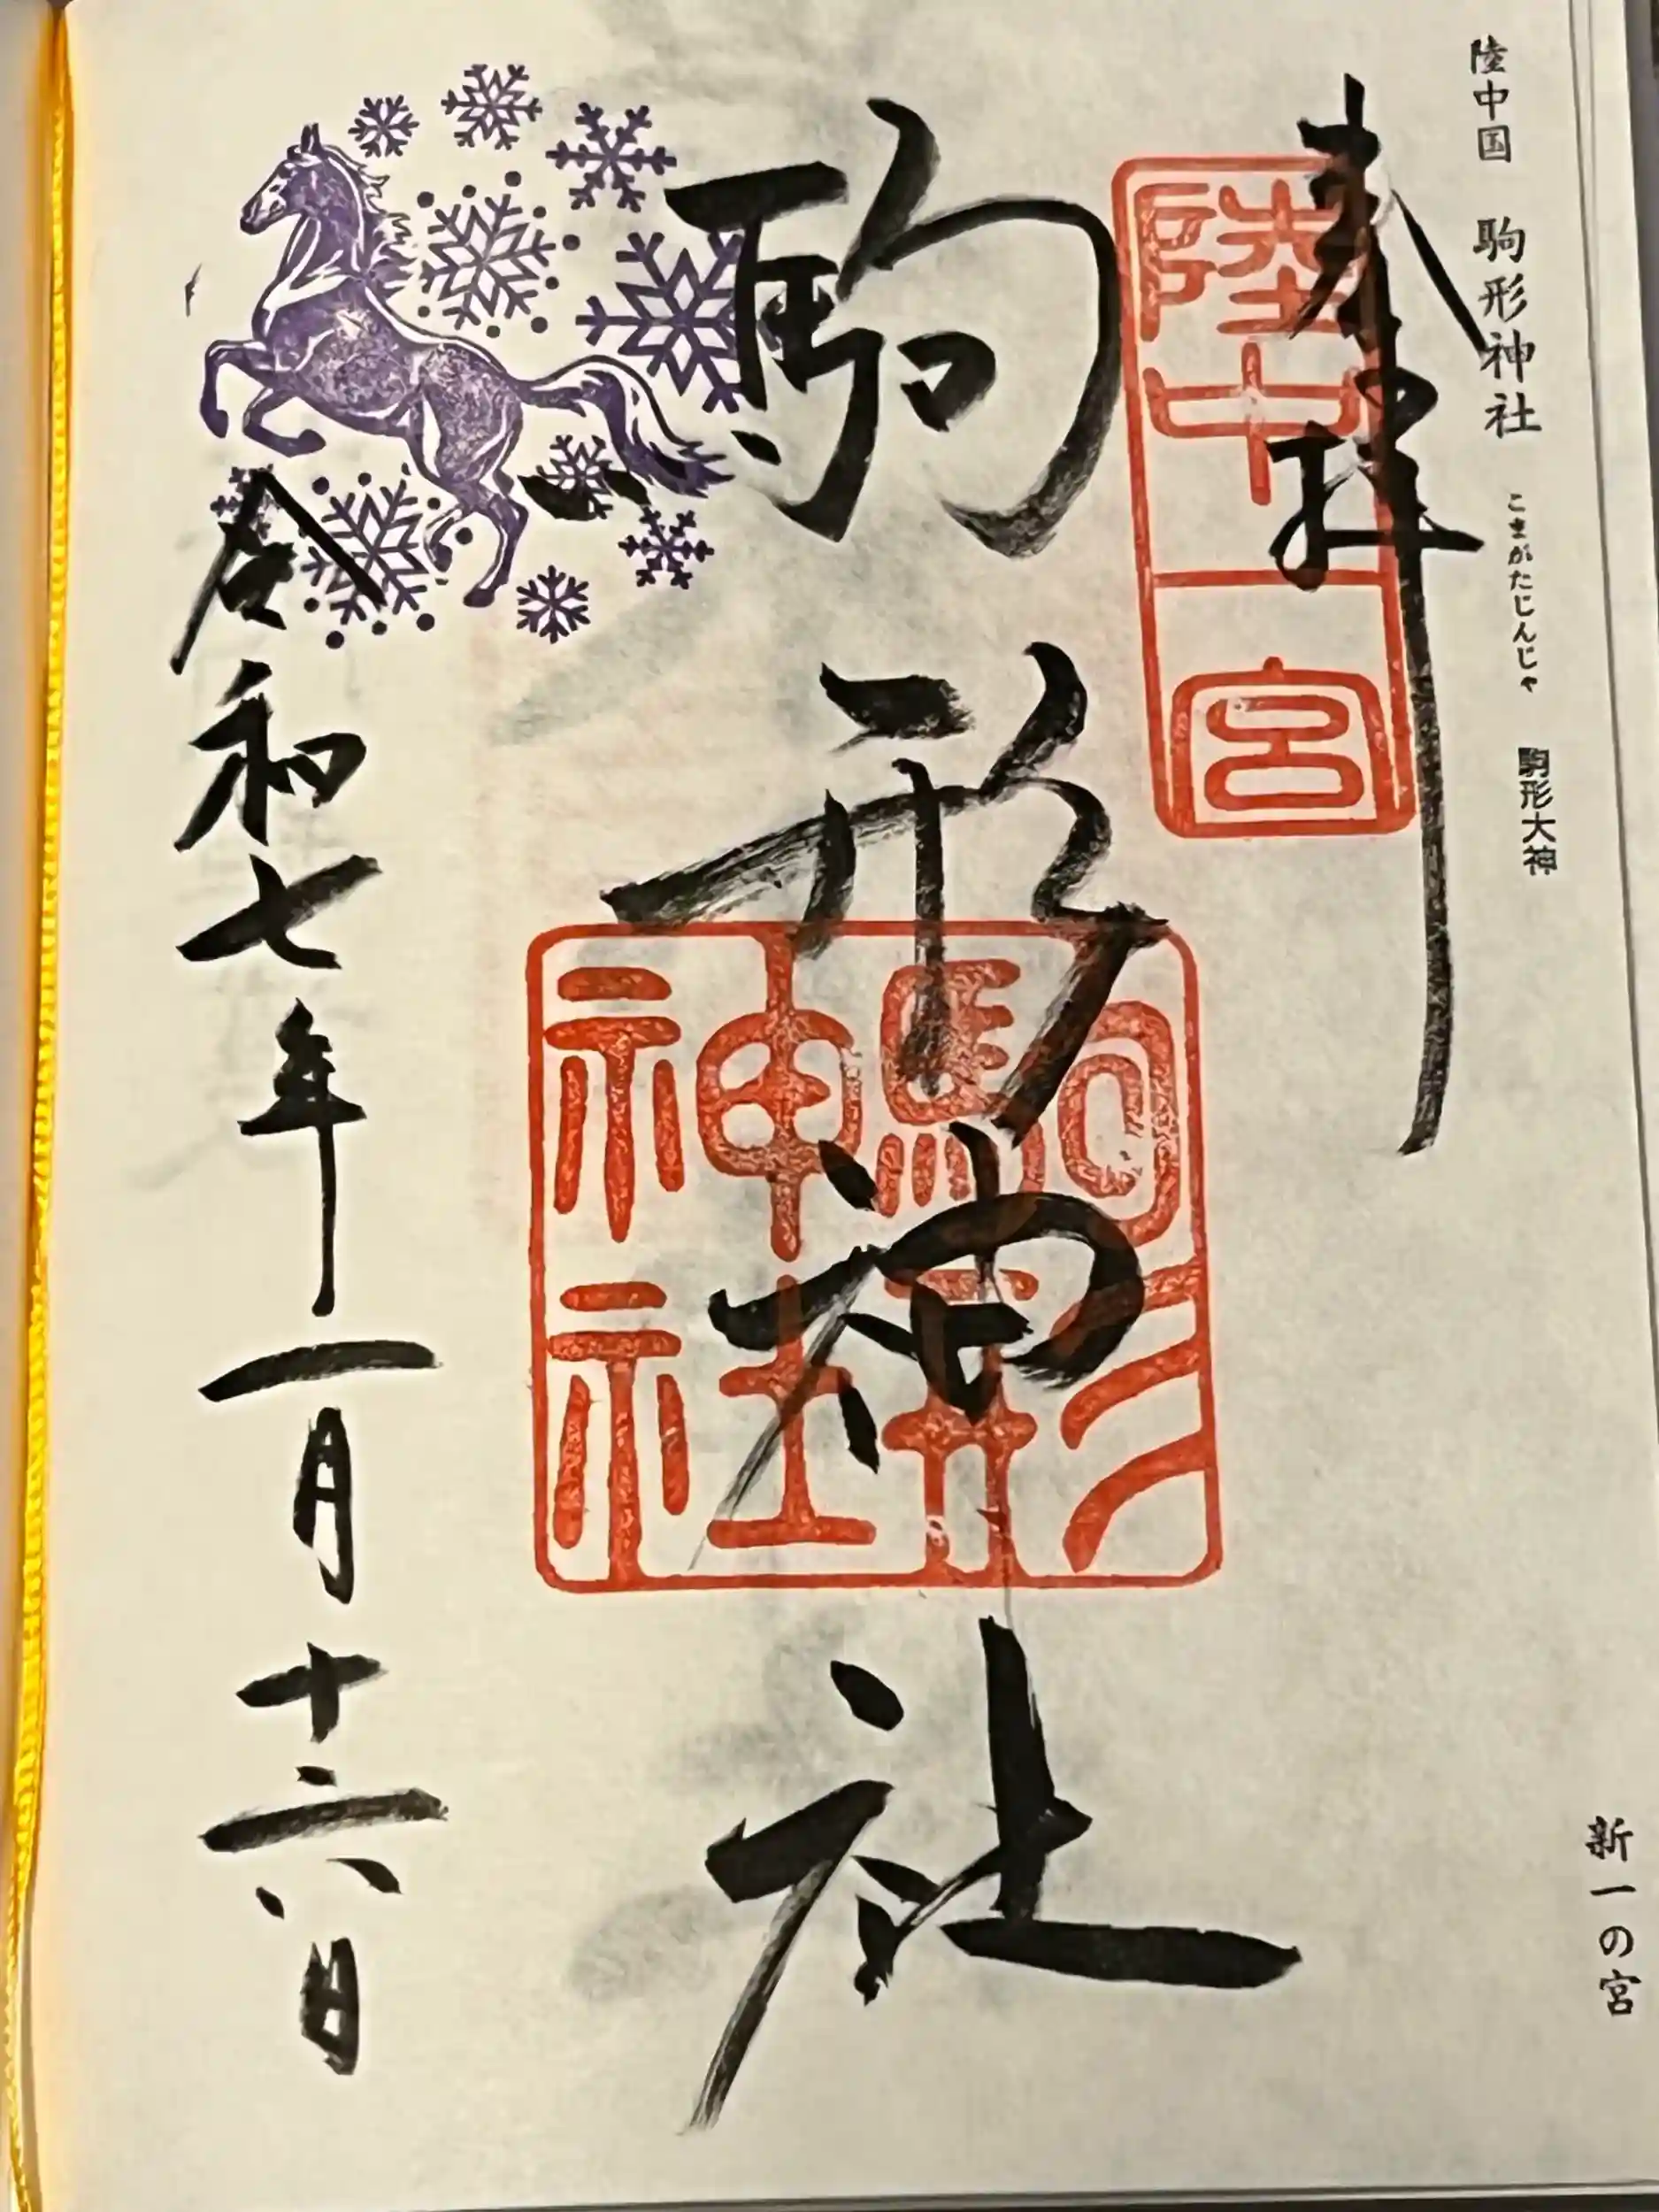 陸中国 駒形神社 こまがたじんじゃ 駒形大神
新一の宮
奉拝
陸中一宮
駒形神社
駒形神社
令和七年一月十六日